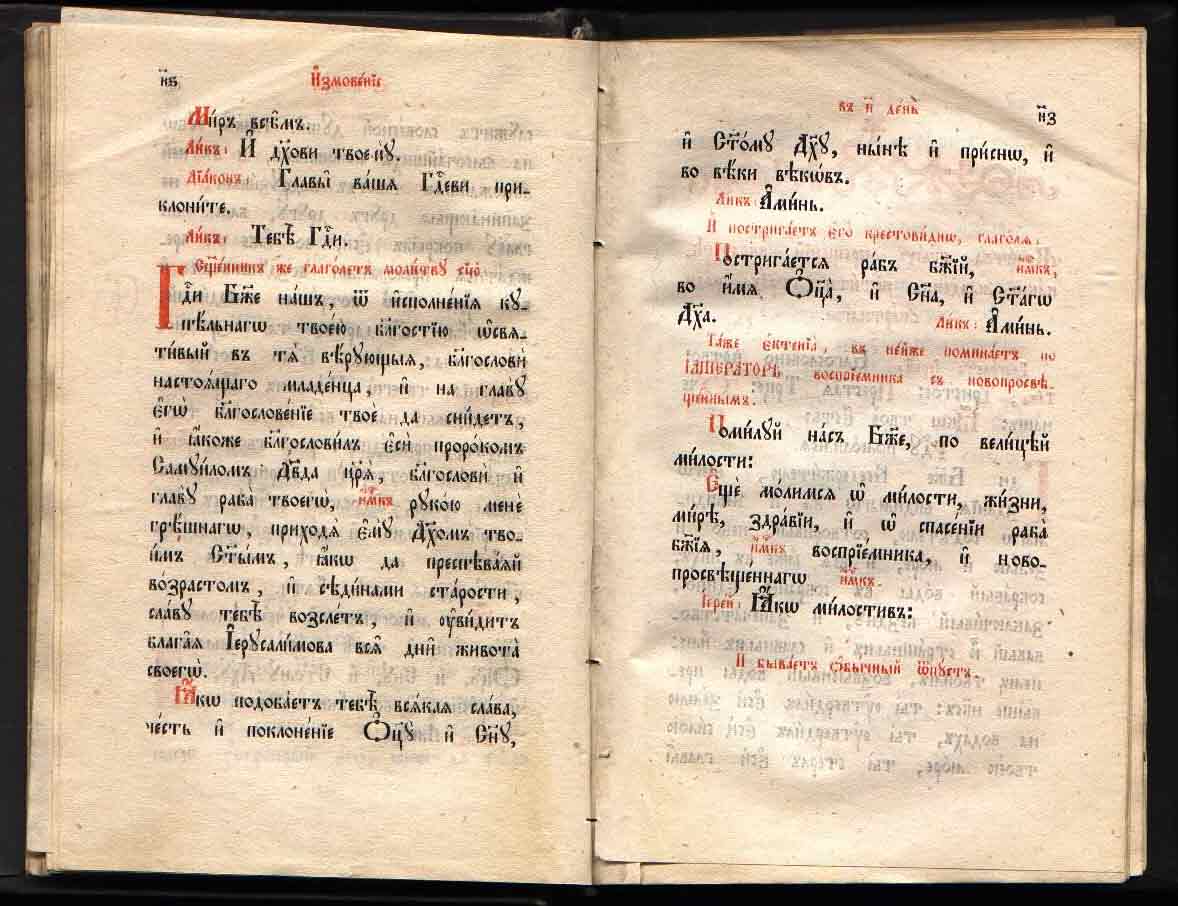 н҃ѕ
И҆змове́нїе
Ми́ръ всѣ̑мъ.
Ли́къ: И҆ дх҃ови твоемꙋ̀.
Дїа́конъ: Главы̑ ва́шѧ Гд҇еви при-
клони́те.
Ли́къ: Тебѣ̀ Гд҇и.
Сщ҃е́нникъ же глаго́летъ моли́твꙋ сїю̀.
Гд҇и Бж҃е на́шъ, ѿ и҆сполне́нїѧ кꙋ-
пѣ́льнагѡ твое́ю бл҃гостїю ѡ҆свѧ-
ти́вый въ тѧ̀ вѣ́рꙋющыѧ, бл҃гословѝ
настоѧ́щаго младе́нца, и҆ на главꙋ̀
є҆гѡ̀ бл҃гослове́нїе твоѐ да сни́детъ,
и҆ ꙗ҆́коже бл҃гослови́лъ є҆сѝ проро́комъ
Самꙋи́ломъ Дв҃да цр҃ѧ̀, бл҃гословѝ и҆
главꙋ̀ раба̀ твоегѡ̀, и҆́мкъ рꙋко́ю менѐ
грѣ́шнагѡ, приходѧ̀ є҆мꙋ̀ Дх҃омъ тво-
и́мъ Ст҃ы́мъ, ꙗ҆́кѡ да преспѣва́ѧй
во́зрастомъ, и҆ сѣди́нами ста́рости,
сла́вꙋ тебѣ̀ возсле́тъ, и҆ ᲂу҆ви́дитъ
блага̑ѧ Іерⷭꙋсали́мова всѧ̑ дни̑ живота̀
своегѡ̀.
Ꙗ҆́кѡ подоба́етъ тебѣ̀ всѧ́каѧ сла́ва,
че́сть и҆ поклоне́нїе Ѻ҆ц҃ꙋ̀ и҆ Сн҃ꙋ,
въ и҃ де́нь
н҃з
и҆ Ст҃о́мꙋ Дх҃ꙋ, ны́нѣ и҆ при́снѡ, и҆
во вѣ́ки вѣкѡ́въ.
Ли́къ: А҆ми́нь.
И҆ постриза́етъ є҆го̀ крестови́днѡ, глаго́лѧ:
Пострига́етсѧ ра́бъ бж҃їй, и҆́мкъ,
во и҆́мѧ Ѻ҆ц҃а̀, и҆ Сн҃а, и҆ Ст҃а́гѡ
Дх҃а. Ли́къ: А҆ми́нь.
Та́же є҆ктенїа̀, въ не́йже помина́етъ по
ІМПЕРАТОРѢ воспрїе́мника съ новопросвѣ-
ще́ннымъ.
Поми́лꙋй на́съ Бж҃е, по вели́цѣй
ми́лости:
Є҆щѐ мо́лимсѧ ѡ҆ ми́лости, жи́зни,
ми́рѣ, здра́вїи, и҆ ѡ҆ спасе́нїи раба̀
бж҃їѧ, и҆́мкъ воспрїе́мника, и҆ ново-
просвѣще́ннагѡ и҆́мкъ.
І҆ере́й: Ꙗ҆́кѡ ми́лостивъ:
И҆ быва́етъ ѻ҆бы́чный ѿпꙋ́стъ.